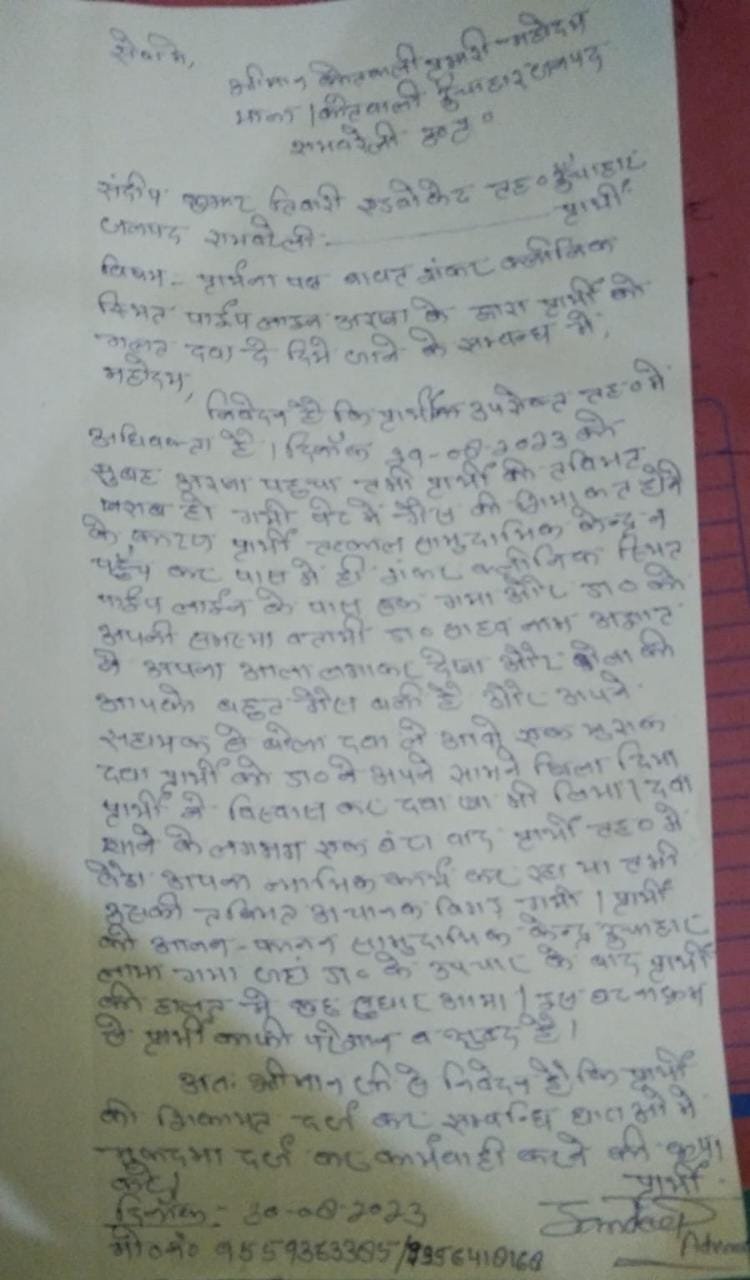 सेवा में,
श्रीमान कोतवाली प्रभारी महोदय
थाना / कोतवाली ऊँचाहार जनपद
रायबरेली उ०प्र०
संदीप कुमार तिवारी एडवोकेट तह० ऊँचाहार
जनपद रायबरेली - प्रार्थी
विषय - प्रार्थना पत्र बावत शंकर क्लीनिक
स्थित पाईप लाइन अरखा के द्वारा प्रार्थी को
गलत दवा दे दिये जाने के सम्बन्ध में,
महोदय,
निवेदन है कि प्रार्थी उपरोक्त तह० में
अधिवक्ता है। दिनाँक 29-08-2023 को
सुबह अरखा पहुचा तभी प्रार्थी की तबियत
खराब हो गयी पेट में गैस की होने
के कारण प्रार्थी तत्काल सामुदायिक केन्द्र न
पहुँच कर पास में ही शंकर क्लीनिक स्थित
पाईप लाईन के पास रुक गया और डा० को
अपनी समस्या बतायी डा० साहब नाम अज्ञात
ने अपना आला लगाकर देखा और बोला की
आपके बहुत गैस बनी है और अपने
सहायक से बोला दवा ले आओ एक खुराक
दवा प्रार्थी को डा० ने अपने सामने खिला दिया
प्रार्थी ने विश्वास कर दवा खा भी लिया। दवा
खाने के लगभग एक घंटा बाद प्रार्थी तह० में
बैठा अपना न्यायिक कार्य कर रहा था तभी
उसकी तबियत अचानक बिगड़ गयी। प्रार्थी
को आनन-फानन सामुदायिक केन्द्र ऊँचाहार
लाया गया जहां डा० के उपचार के बाद प्रार्थी
की हालत में कुछ सुधार आया। इस घटनाक्रम
से प्रार्थी काफी परेशान व है।
अतः श्रीमान जी से निवेदन है कि प्रार्थी
की शिकायत दर्ज कर सम्बन्धि धाराओ में
मुकदमा दर्ज कर कार्यवाही करने की कृपा
करें। प्रार्थी
दिनाँक:- 30-08-2023 Sandeep
मो०नं० 9559363385/9956418168